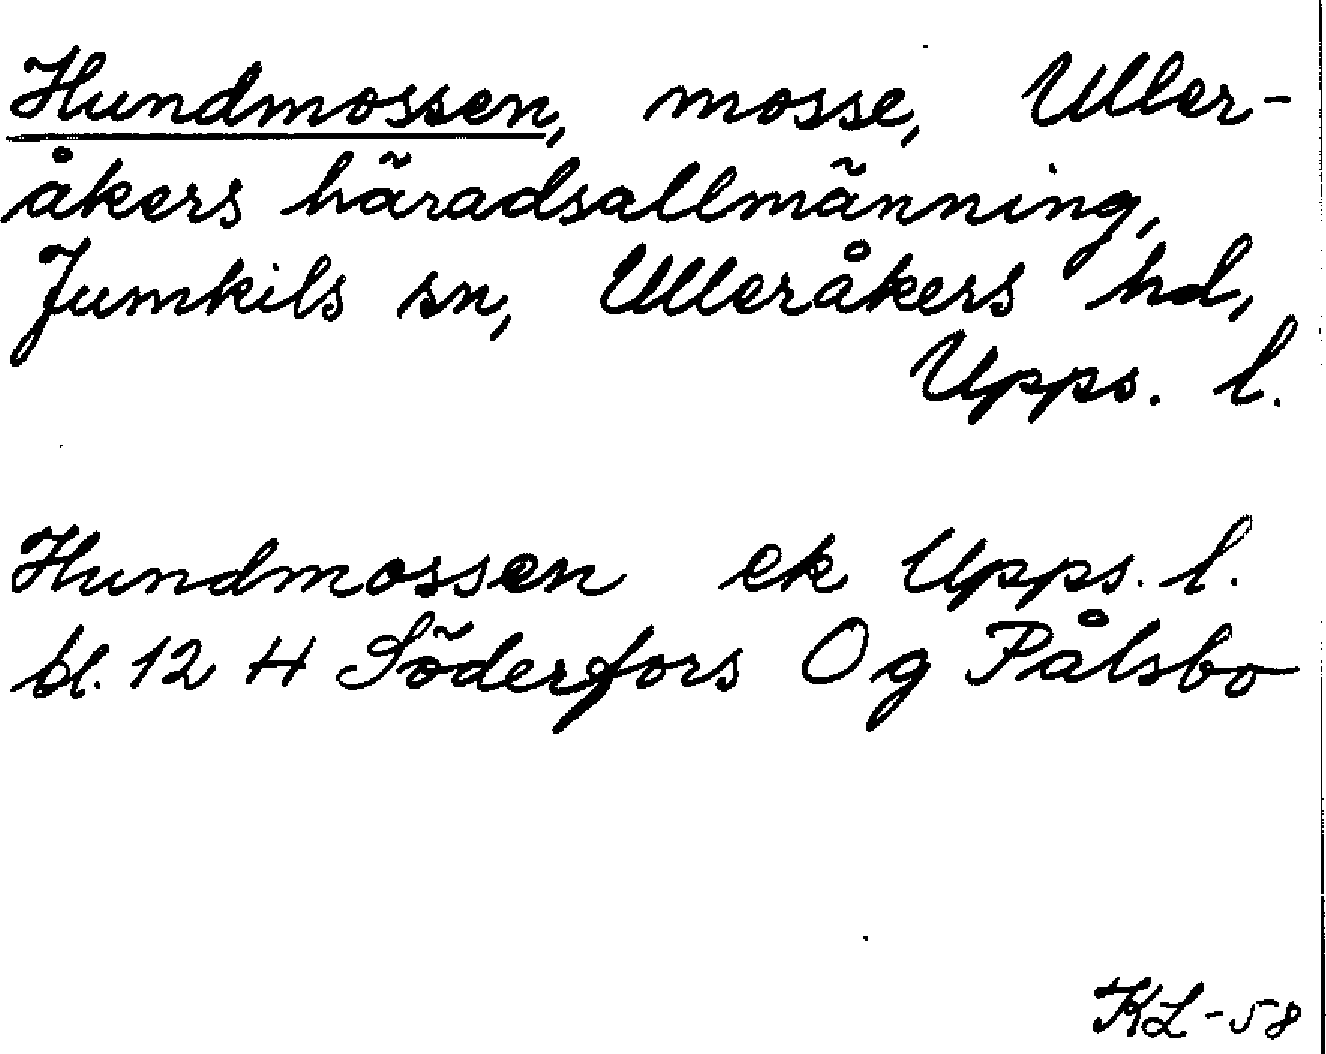 Hundmossen, mosse, Uller-
åkers häradsallmänning,
Jumkils sn, Ulleråkers hd,
Upps. l.
Hundmossen ek Upps. l.
bl. 12 H Söderfors Og Pålsbo
KL-58